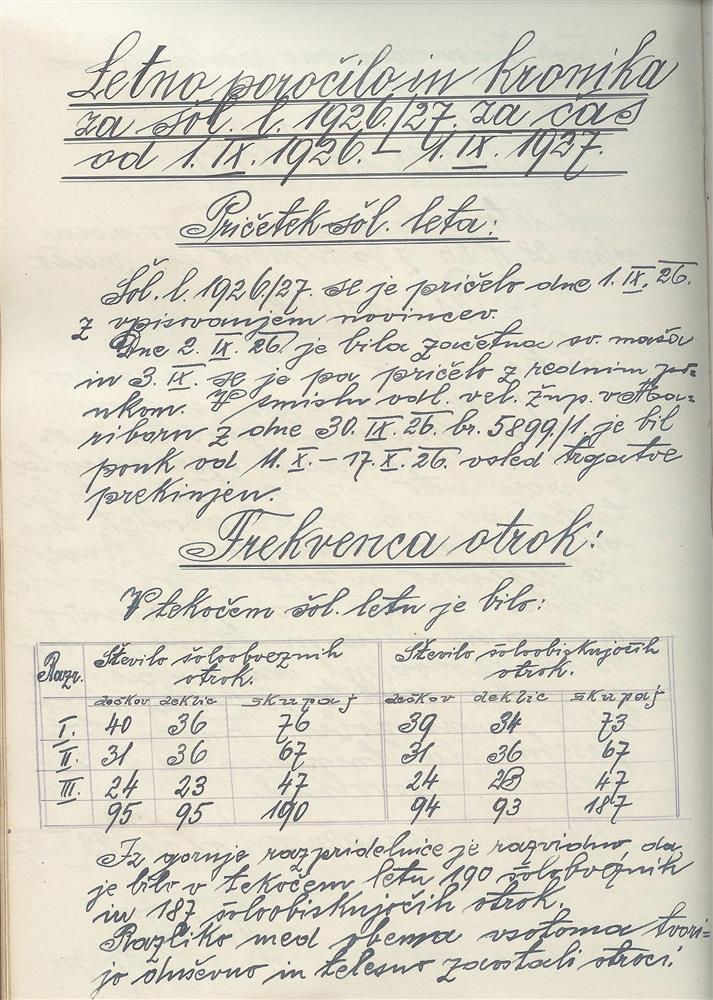 Letno poročilo in kronika
za šol. l. 1926./27. za čas
od 1. IX. 1926. – 1. IX. 1927.
Pričetek šol. leta:
Šol. l. 1926./27. se je pričelo dne 1. IX. 26.
z vpisovanjem novincev.
Dne 2. IX. 26. je bila začetna sv. maša
in 3. IX. se je pa pričelo z rednim po-
ukom. V smislu odl. vel. žup. v Ma-
riboru z dne 30. IX. 26. br. 5899/1. je bil
pouk od 11. X. – 17. X. 26. vsled trgatve
prekinjen.
Frekvenca otrok:
V tekočem šol. letu je bilo:
Razr. Število šoloobveznih otrok. Število šoloobiskujočih otrok.
dečkov deklic skupaj dečkov deklic skupaj
I. 40 36 76 39 34 73
II. 31 36 67 31 36 67
III. 24 23 47 24 23 47
95 95 190 94 93 187
Iz gornje razpridelnice je razvidno, da
je bilo v tekočem letu 190 šolobveznih
in 187 šoloobiskujočih otrok.
Razliko med obema vsotoma tvori-
jo duševno in telesno zaostali otroci.